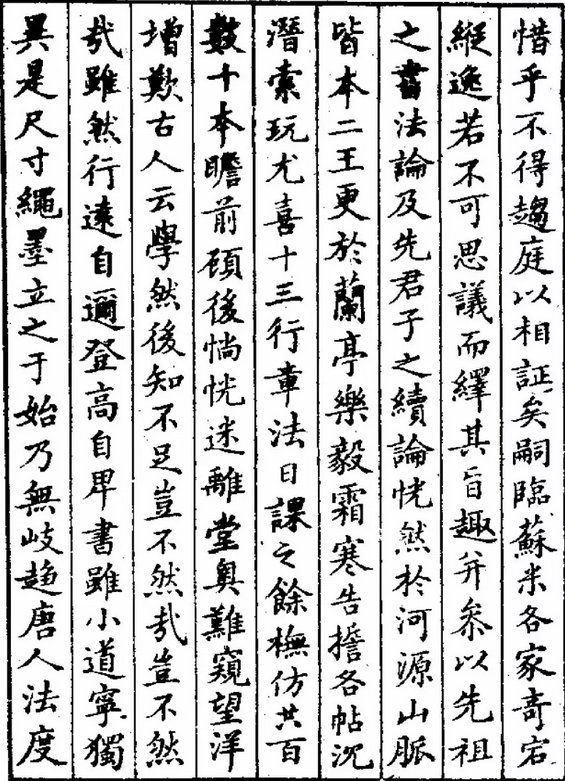 惜乎不得趨庭以相証矣嗣臨蘇米各家奇宕
縱逸若不可思議而繹其旨趣并叅以先祖
之書法論及先君子之續論恍然於河源山脈
皆本二王更於蘭亭樂毅霜寒告誓各帖沉
潛索玩尤喜十三行章法日課之餘橅仿共百
數十本瞻前顧後惝恍迷離堂奧難窺望洋
增歎古人云學然後知不足豈不然㢤豈不然
㢤雖然行遠自邇登高自卑書雖小道寧獨
異是尺寸繩墨立之于始乃無歧趋唐人法度